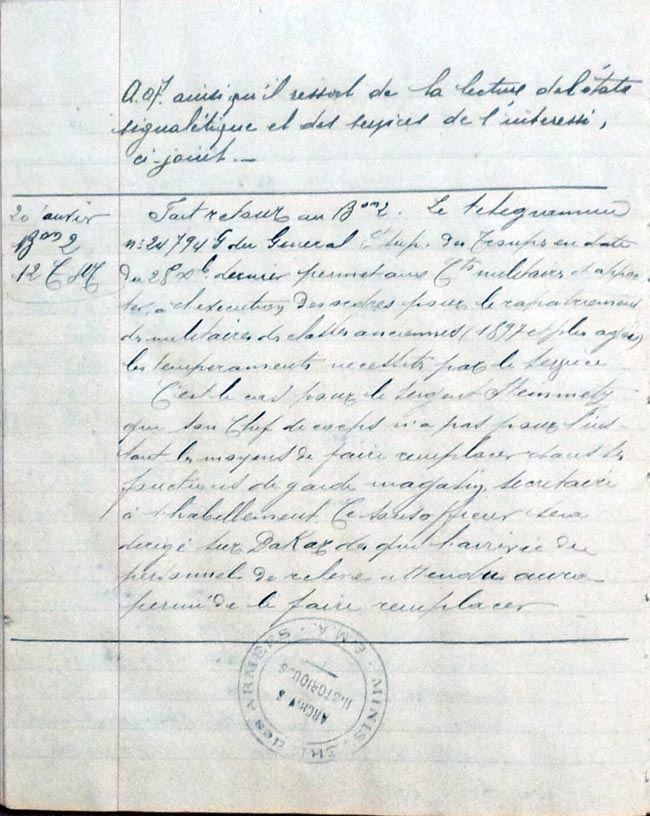 A.O.F. ainsi qu'il ressort de la lecture de l'états
signalétique et des services de l'interessé,
ci-joint. —
20 janvier
Bon 2
12 C M
Fait retour au Bon 2. Le telegramme
n: 24794 G du General Ct Sup. des Troupes en date
du 28 Xbre dernier permet aux Cts militaires d'appor-
ter, à l'execution des ordres pour le rapatriement
des militaires des classes anciennes (1897 et plus agées)
les temperaments necessités par le service
C'est le cas pour le sergent Stemmetz
que son Chef de corps n'a pas pour l'ins-
tant les moyens de faire remplacer dans les
fonctions de garde magasin, secretaire
à l'habillement. Ce sous officier sera
dirigé sur Dakar dès que l'arrivée du
personnel de releve attendu aura
permis de le faire remplacer
MINISTERE des ARMEES · E.M.A.
ARCHIVES
HISTORIQUES